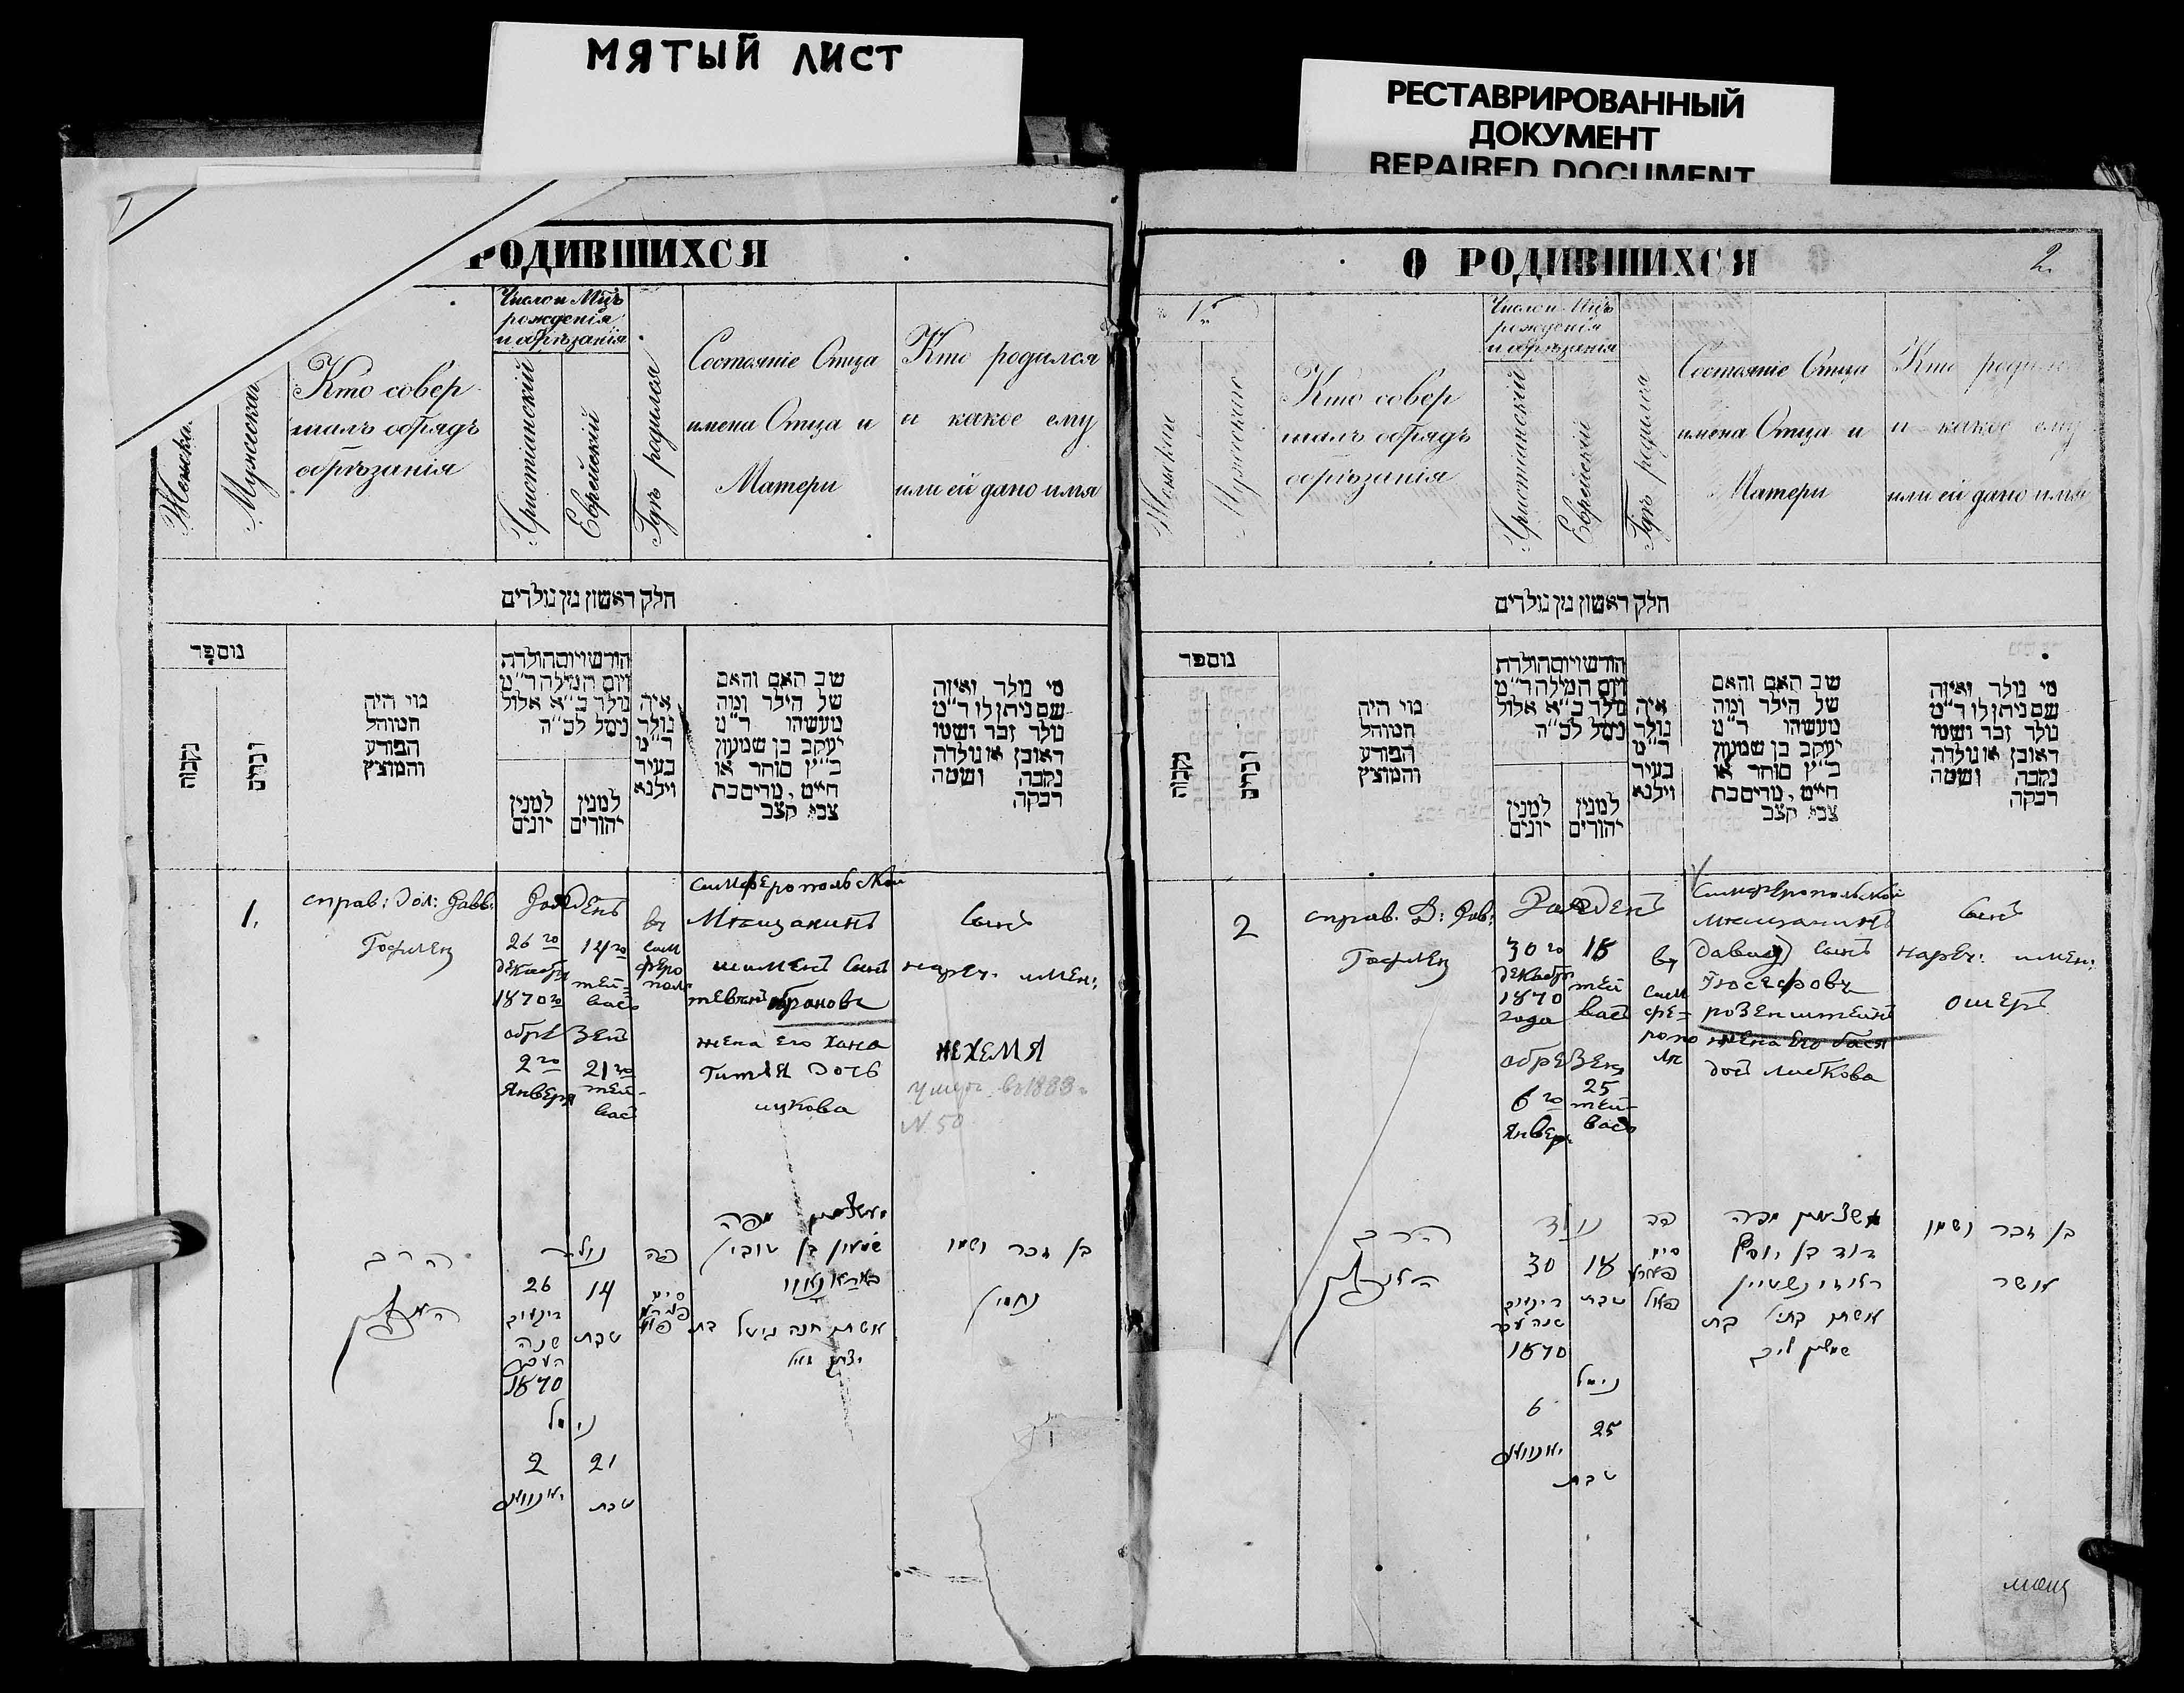 МЯТЫЙ ЛИСТ
РЕСТАВРИРОВАННЫЙ
ДОКУМЕНТ
REPAIRED DOCUMENT
РОДИВШИХСЯ
Женска
Мужеская
Кто совер
шалъ обрядъ
обрѣзанія
Число и Мцъ
рожденія
и обрѣзанія
Христіанскій
Еврейскій
Гдѣ родился
Состояніе Отца
имена Отца и
Матери
Кто родился
и какое ему
или ей дано имя
חלק ראשון מן נולדים
מוספר
נקבות
זכרים
מי היה
המוהל
הפורע
והמוצץ
חודש ויום הולדת
ויום המילה ר״מ
נולד כ״א אלול
נימל לכ״ה
למנין
יונים
למנין
יהודים
איה
נולד
ר״מ
בעיר
וילנא
שב האם והאם
של הילד ומה
מעשהו ר״מ
יעקב בן שמעון
כ״ץ סוחר או
חייט, מרים בת
צבי קצב
מי נולד ואיזה
שם ניתן לו ר״מ
נולד זכר ושמו
ראובן או נולדה
נקבה ושמה
רבקה
1.
справ: дол: Равв:
Гофмен
Рожденъ
26го
декабря
1870го
14го
тей-
васъ
обрезенъ
2го
Января
21го
тей-
васъ
въ
сим
феро
поле
симферопольской
Мѣщанинъ
шименъ сынъ
жена его хана
Гитля дочь
ицкова
сынъ
нареч: имен:
НЕХЕМЯ
умеръ въ 1883г
N. 50
הרב
נולד
26
14
טבת
שנה
1870
נימל
2
21
יאנוואר
טבת
פה
שמעון בן טובי׳
אשתו חנה גיטל בת
בן זכר ושמו
נחמי׳
О РОДИВШИХСЯ
2.
1й
Женскаго
Мужескаго
Кто совер
шалъ обрядъ
обрѣзанія
Число и Мцъ
рожденія
и обрѣзанія
Христіанскій
Еврейскій
Гдѣ родился
Состояніе Отца
имена Отца и
Матери
Кто родился
и какое ему
или ей дано имя
חלק ראשון מן נולדים
מוספר
נקבות
זכרים
מי היה
המוהל
הפורע
והמוצץ
חודש ויום הולדת
ויום המילה ר״מ
נולד כ״א אלול
נימל לכ״ה
למנין
יונים
למנין
יהודים
איה
נולד
ר״מ
בעיר
וילנא
שב האם והאם
של הילד ומה
מעשהו ר״מ
יעקב בן שמעון
כ״ץ סוחר או
חייט, מרים בת
צבי קצב
מי נולד ואיזה
שם ניתן לו ר״מ
נולד זכר ושמו
ראובן או נולדה
נקבה ושמה
רבקה
2
справ. Д: Рав:
Гофмен
Рожденъ
30го
декабр:
1870
года
18
тей
васъ
обрезенъ
6го
Январ:
25
тей-
васъ
въ
сим
фе-
ропо
ле
симферопольской
мѣщанинъ
Давидъ сынъ
Іосефовъ
розенштейнъ
жена его бася
доч лисбкова
сынъ
нареч: имен:
ошеръ
הרב
נולד
30
18
טבת
1870
נימל
6
25
יאנוואר
טבת
פה
דוד בן יוסף
ראזינשטיין
בן זכר ושמו
אשר